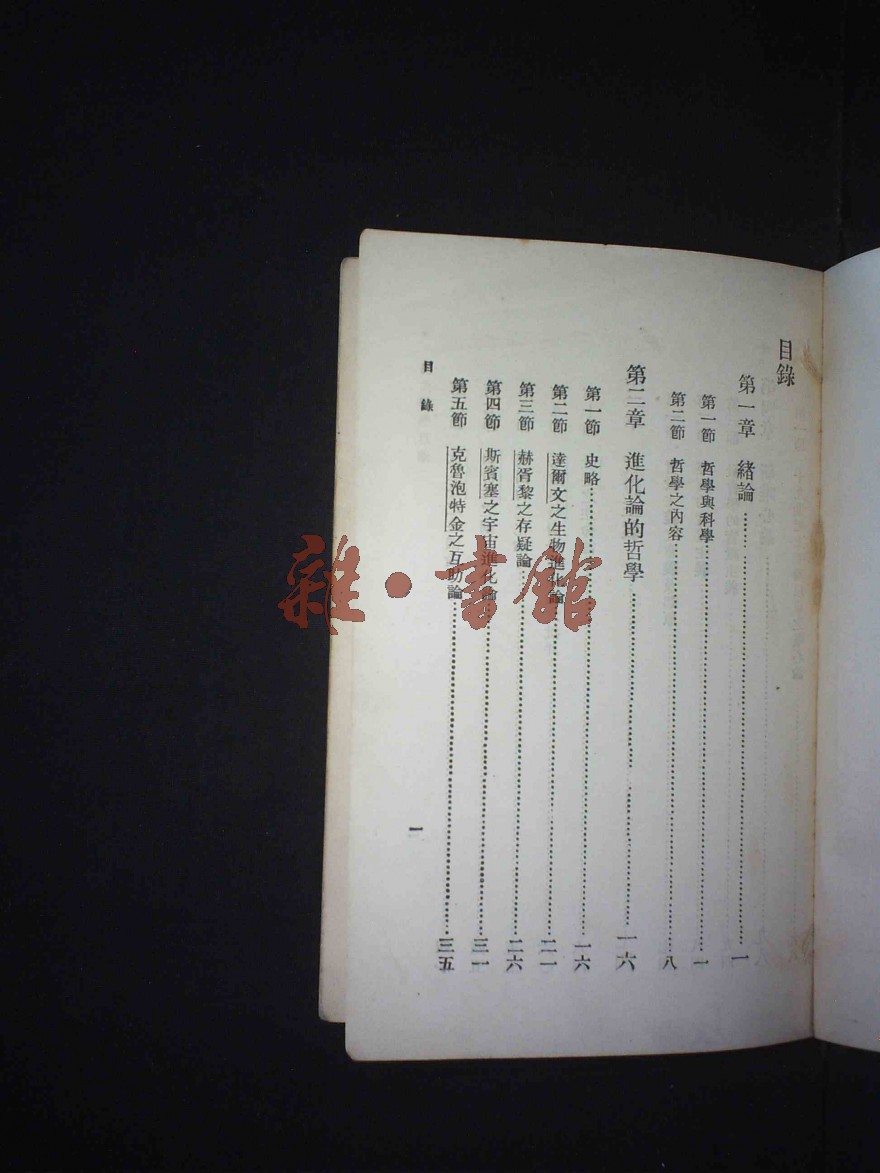 目錄
第一章 緒論……一
第一節 哲學與科學……一
第二節 哲學之內容……八
第二章 進化論的哲學……一六
第一節 史略……一六
第二節 達爾文之生物進化論……二一
第三節 赫胥黎之存疑論……二六
第四節 斯賓塞之宇宙進化論……三一
第五節 克魯泡特金之互助論……三五
目錄
一
雜·書館